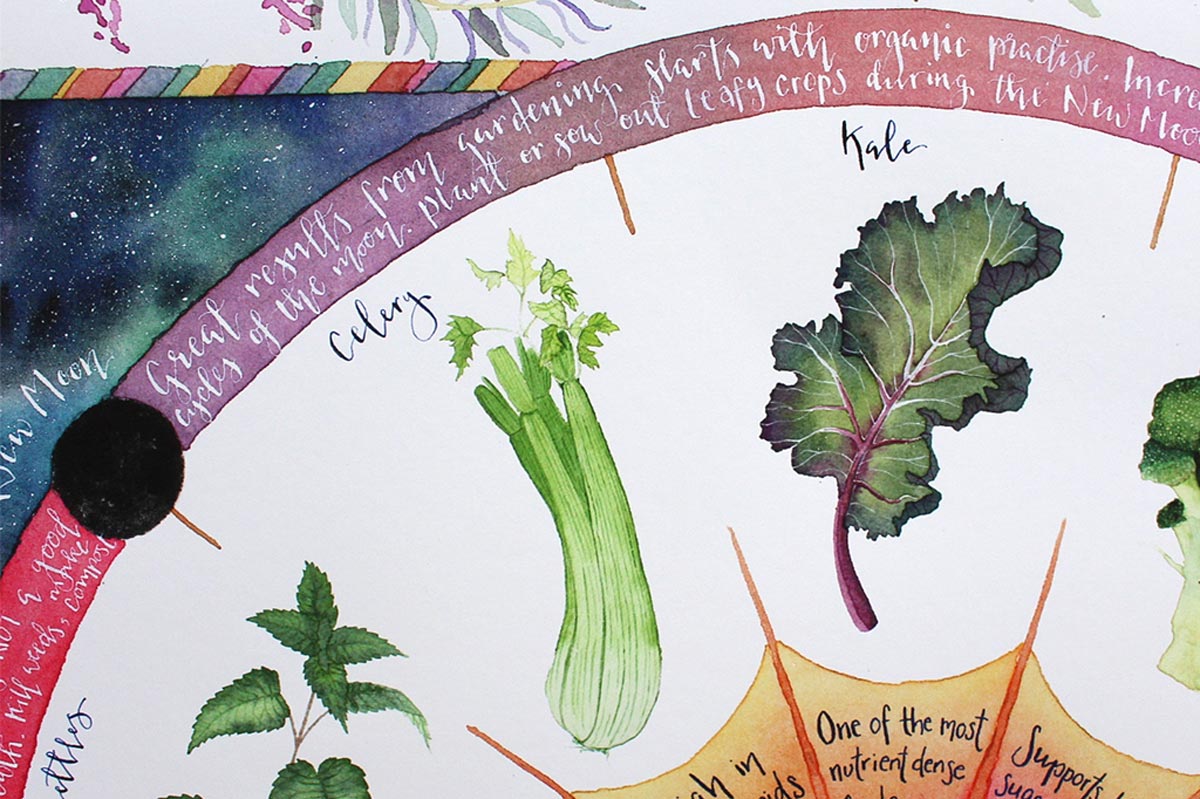 Great results from gardening starts with organic practise. Incre
cycles of the moon. plant or sow out leafy crops during the New Moo
New Moon
Kale
Celery
a good
make
kill weeds, compost
ettles
One of the most
nutrient dense
h in
ids
Supports